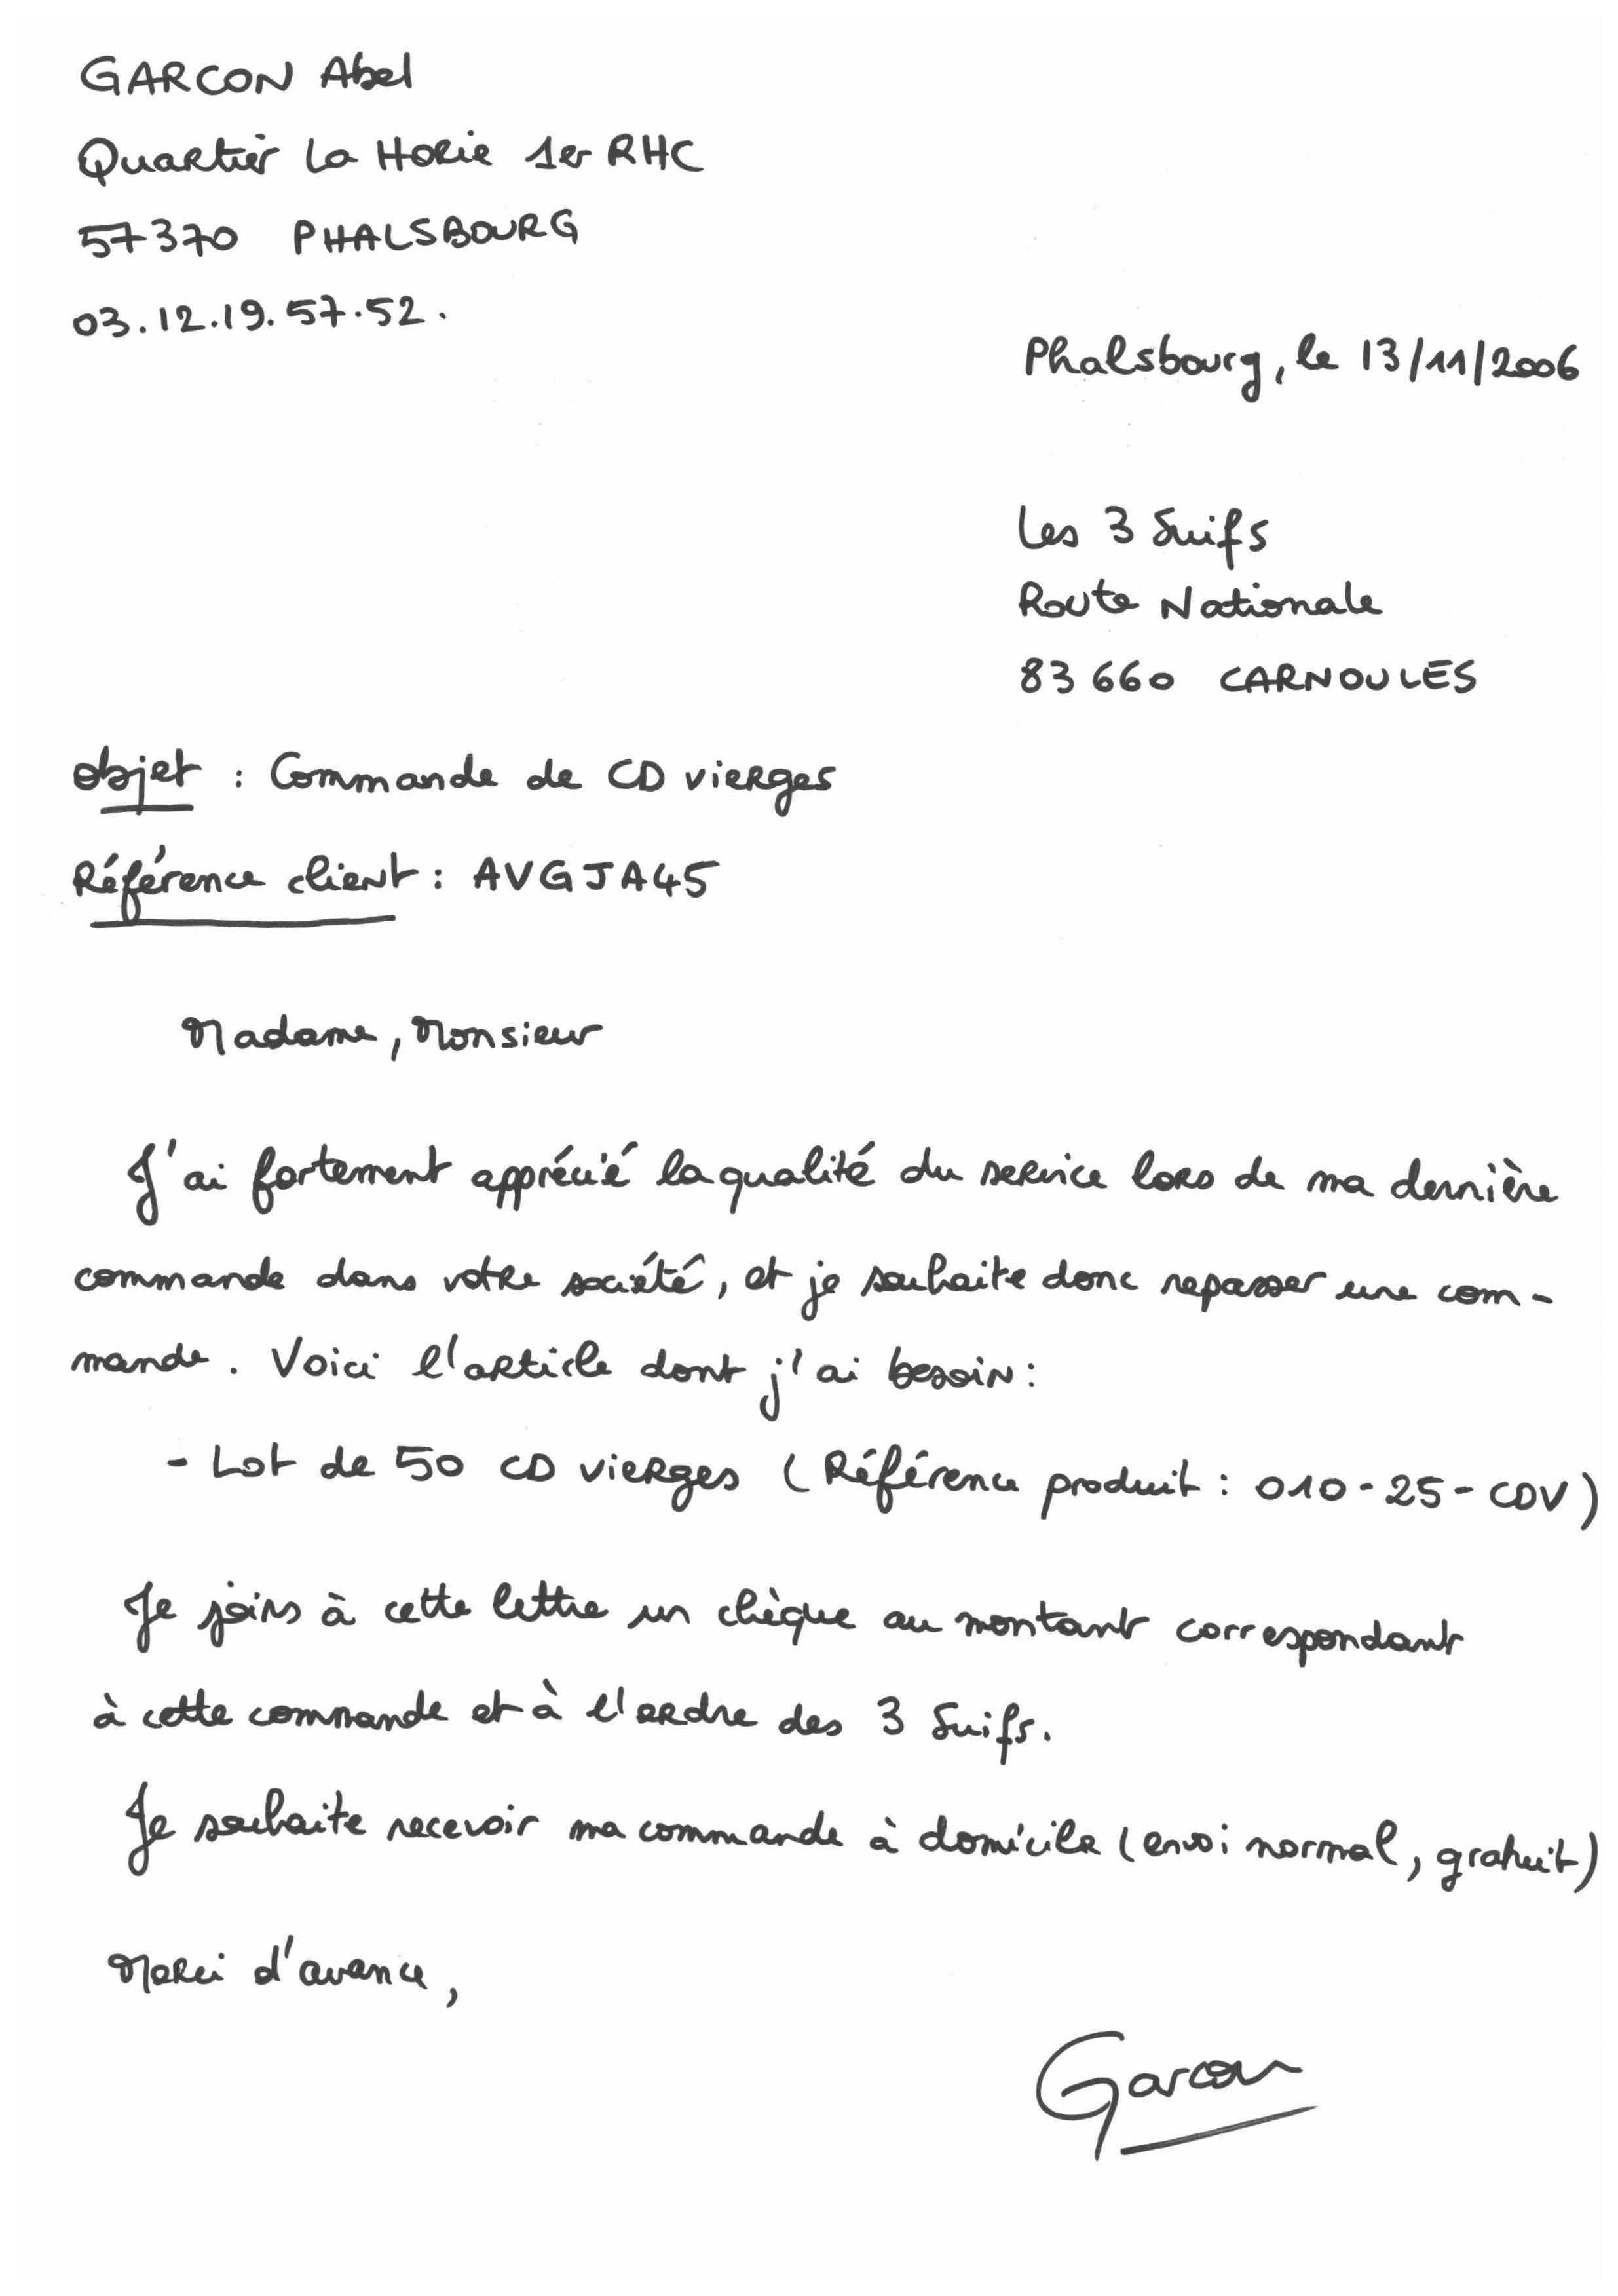 GARCON Abel
Quartier La Horie 1er RHC
57370 PHALSBOURG
03.12.19.57.52.
Phalsbourg, le 13/11/2006
Les 3 Suifs
Route Nationale
83660 CARNOULES
Objet : Commande de CD vierges
Référence client : AVGJA45
Madame, Monsieur
J'ai fortement apprécié la qualité du service lors de ma dernière
commande dans votre société, et je souhaite donc repasser une com-
mande. Voici l'article dont j'ai besoin :
- Lot de 50 CD vierges (Référence produit : 010-25-CDV)
Je joins à cette lettre un chèque au montant correspondant
à cette commande et à l'ordre des 3 Suifs.
Je souhaite recevoir ma commande à domicile (envoi normal, gratuit)
Merci d'avance,
Garcon